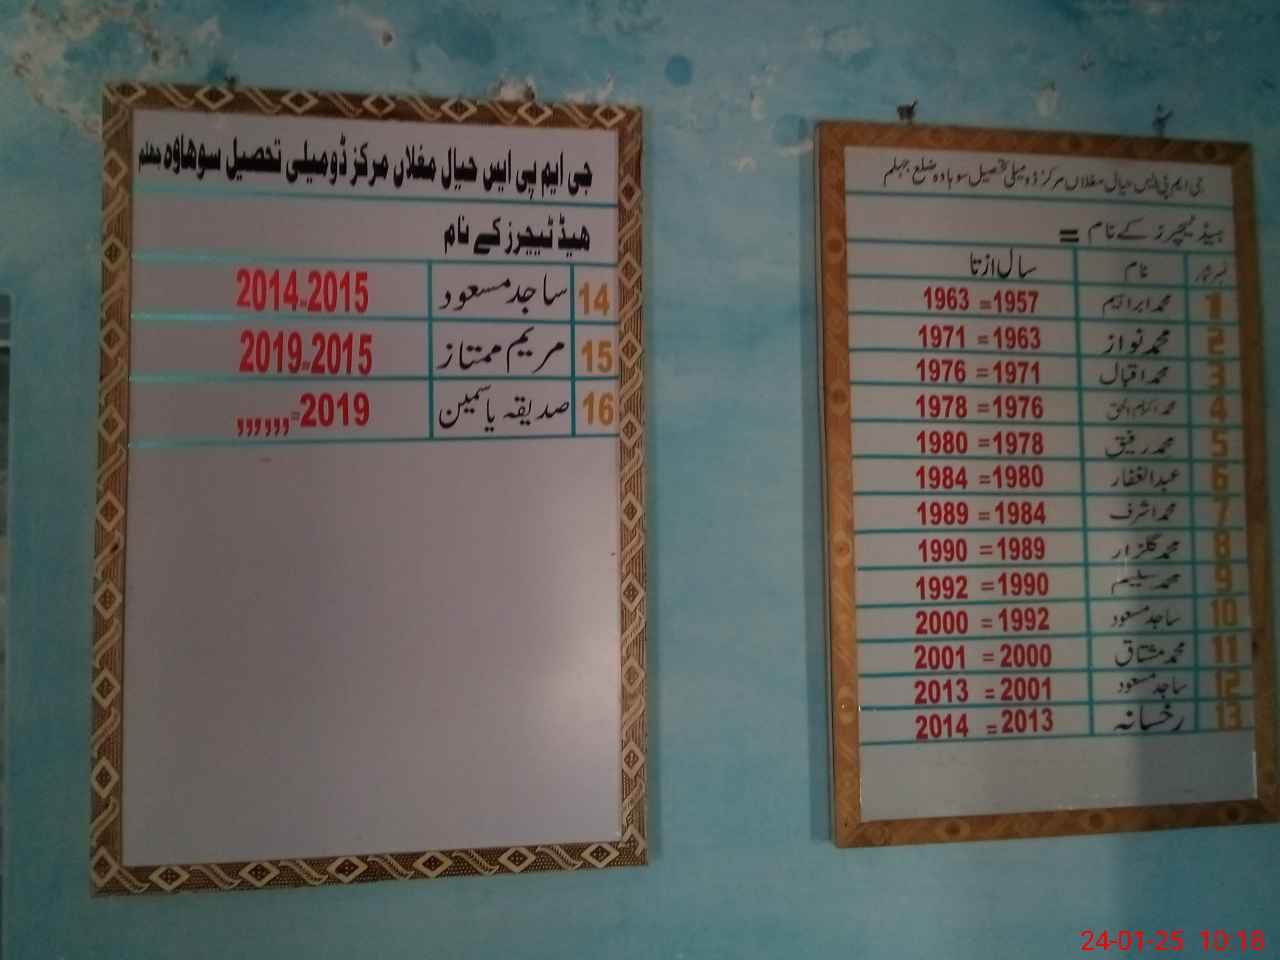 جی ایم پی ایس حیال مغلاں مرکز ڈومیلی تحصیل سوھاوہ جھلم
ھیڈ ٹیچرز کے نام
14 ساجد مسعود 2014=2015
15 مریم ممتاز 2019=2015
16 صدیقہ یاسمین 2019=,,,,,,
جی ایم پی ایس حیال مغلاں مرکز ڈومیلی تحصیل سوہاوہ ضلع جہلم
ہیڈ ٹیچرز کے نام =
نمبر شمار نام سال از تا
1 محمد ابراہیم 1957= 1963
2 محمد نواز 1963= 1971
3 محمد اقبال 1971= 1976
4 محمد اکرام الحق 1976= 1978
5 محمد رفیق 1978= 1980
6 عبدالغفار 1980= 1984
7 محمد اشرف 1984= 1989
8 محمد گلزار 1989= 1990
9 محمد سلیم 1990= 1992
10 ساجد مسعود 1992= 2000
11 محمد مشتاق 2000= 2001
12 ساجد مسعود 2001= 2013
13 رخسانہ 2013= 2014
24-01-25 10:18